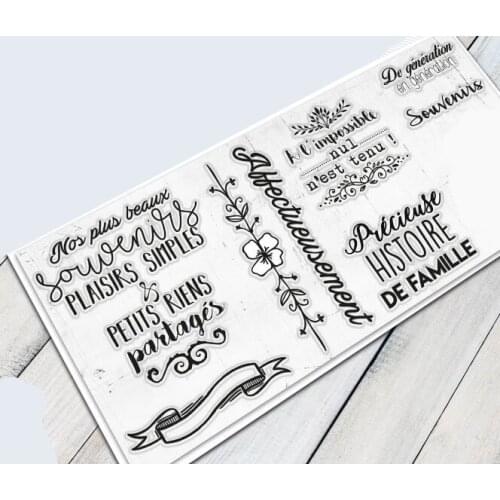 Nos plus beaux
souvenirs
PLAISIRS SIMPLES
&
PETITS RIENS
partagés
Affectueusement
À l'impossible
nul
n'est tenu !
De génération
en génération
Souvenirs
Précieuse
HISTOIRE
DE FAMILLE